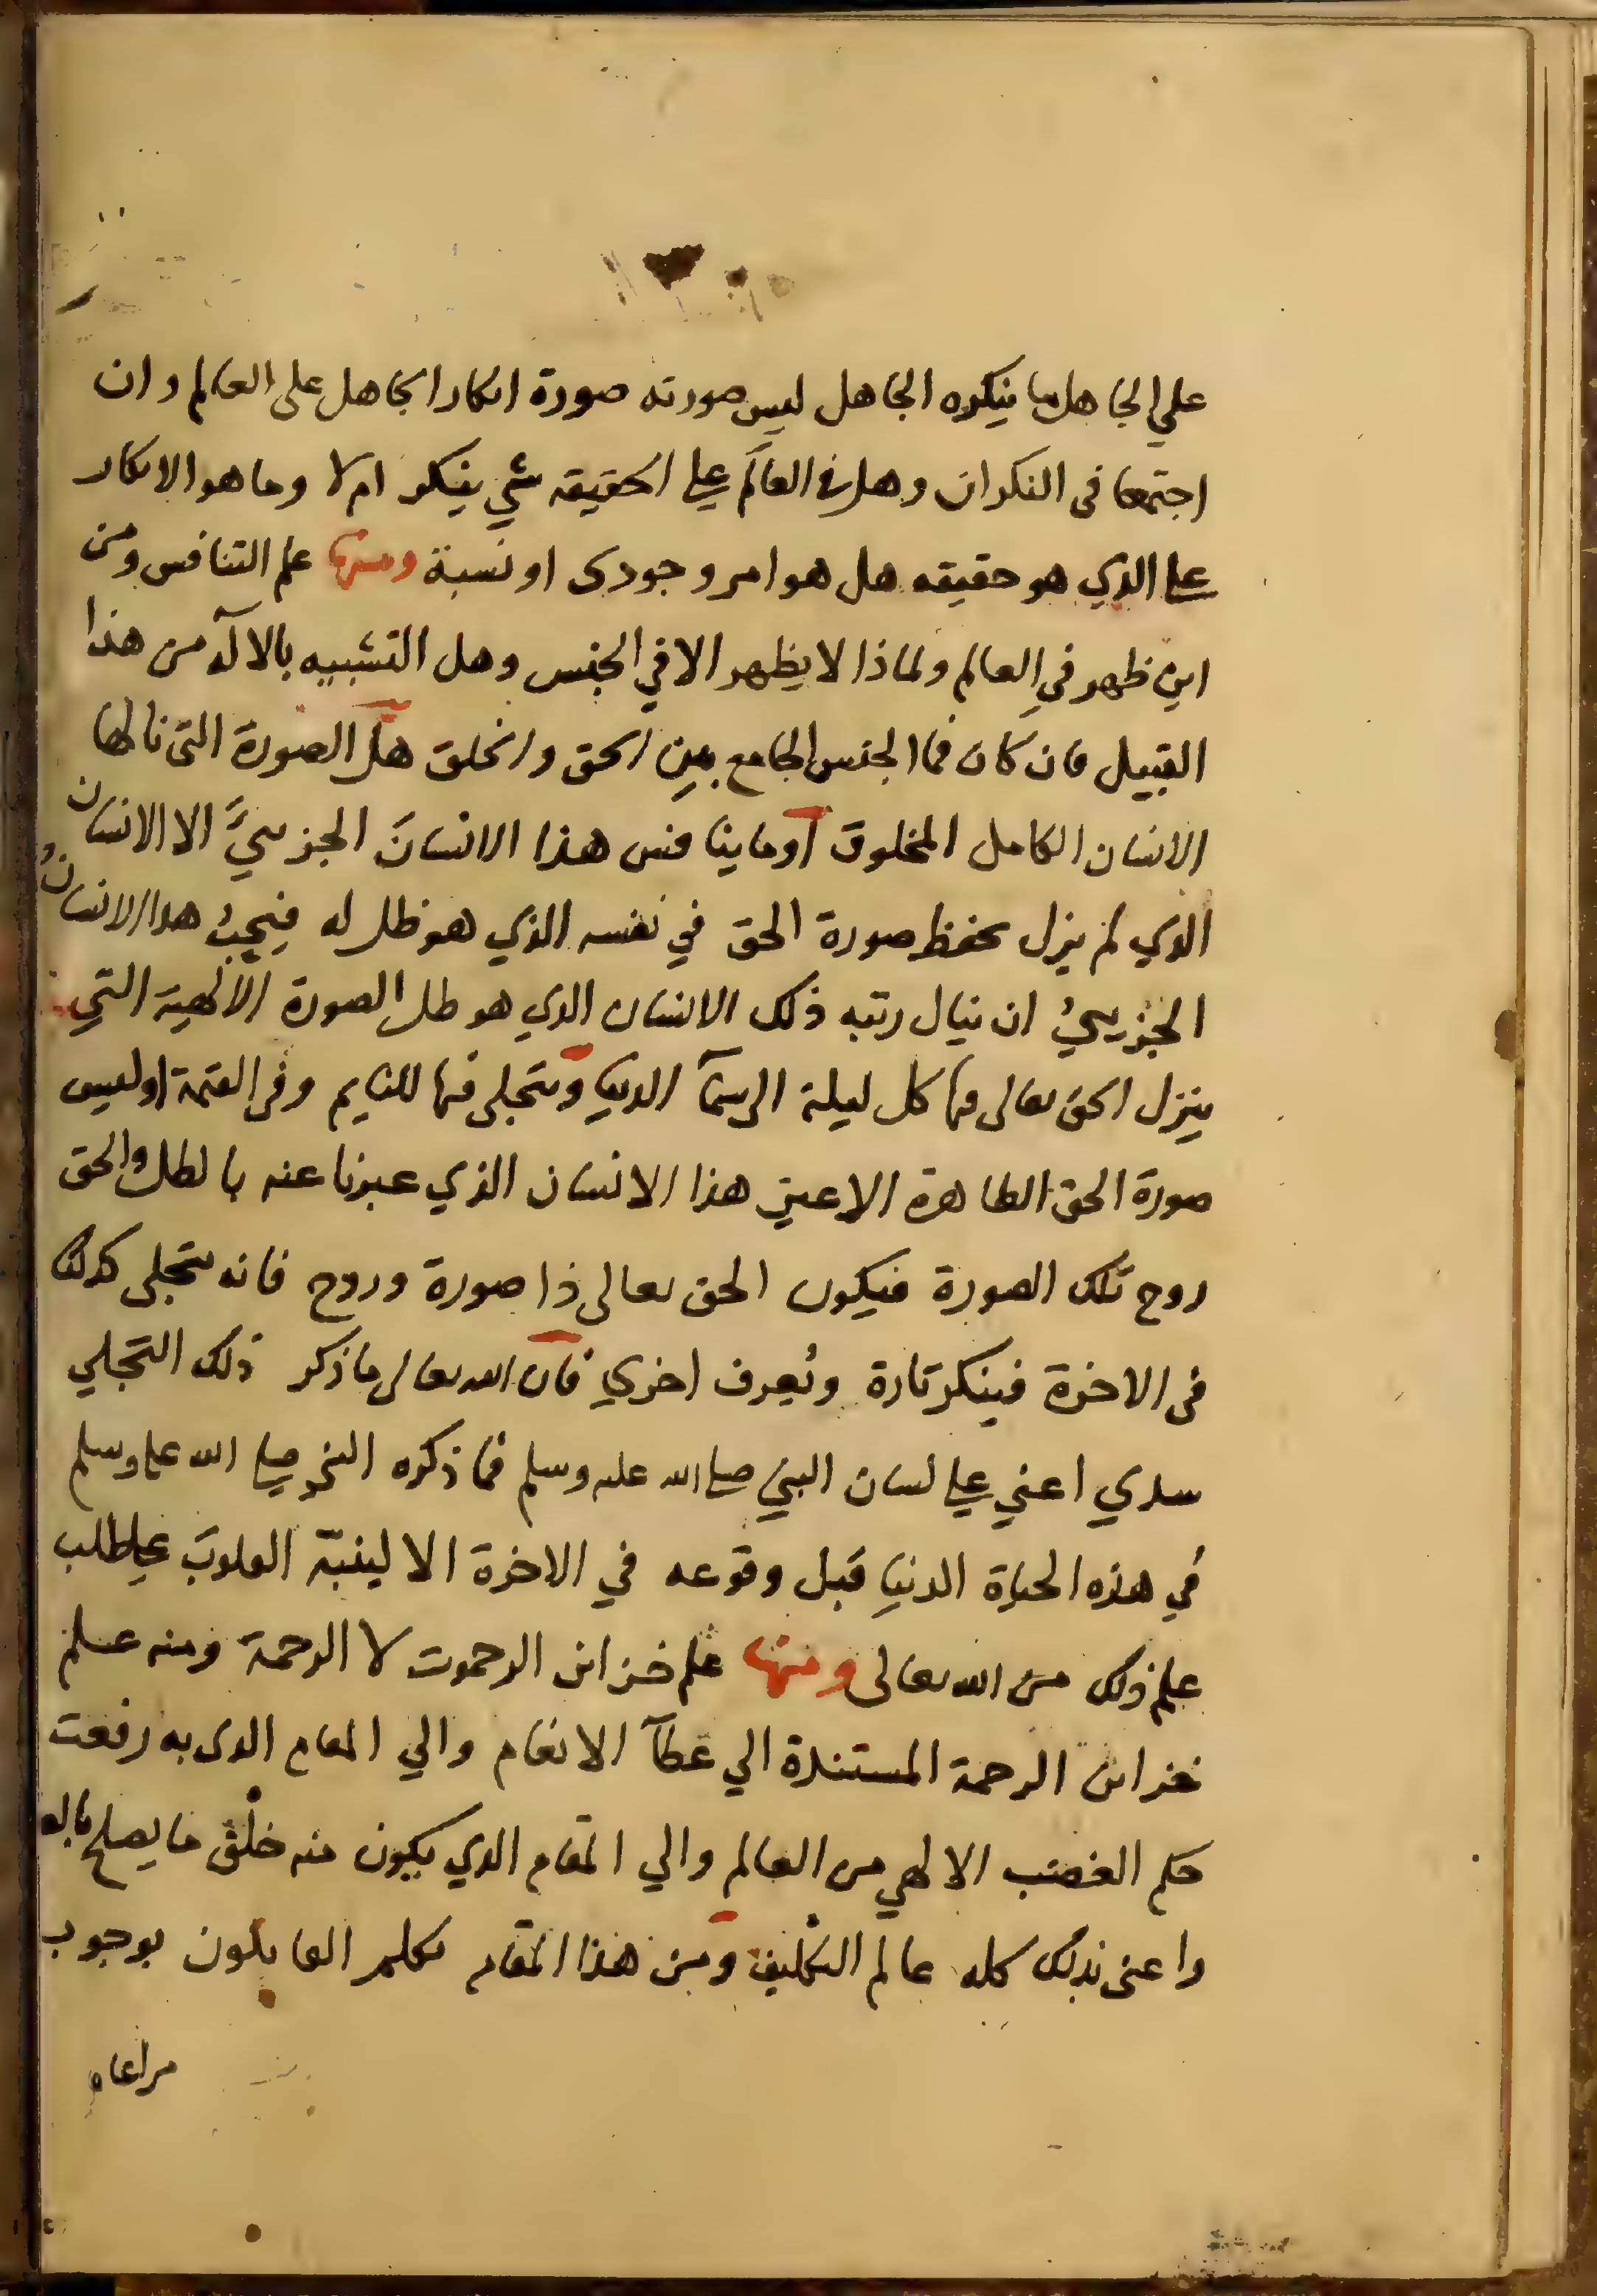 علي الجاهل ما ينكره الجاهل ليس صورته صورة انكار الجاهل على العالم وان
اجتمعا في النكران وهل في العالم على الحقيقه شي ينكر ام لا وما هو الانكار
على الذي هو حقيقه هل هو امر وجودى او نسبة ومنها علم التنافس ومن
اين ظهر في العالم ولماذا لا يظهر الا في الجنس وهل التشبيه بالاله من هذا
القبيل فان كان فما الجنس الجامع بين الحق والخلق هل الصورة التى نالها
الانسان الكامل المخلوق او ما ينافس هذا الانسان الجزىيَّ الا الانسان
الذي لم يزل يحفظ صورة الحق في نفسه الذي هو ظل له فيحِبُّ هدا الانسانُ
الجزىيُّ ان ينال رتبه ذلك الانسان الدي هو ظل الصورة الالهية التي
ينزل الحق تعالى فيها كل ليلة الى السمآ الدنيا ويتجلى فيها للنايم وفى القيمة اوليس
صورة الحق الظاهرة الا عين هذا الانسان الذي عبرنا عنه بالظل والحق
روح تلك الصورة فيكون الحق تعالى ذا صورة وروح فانه يتجلى كذلك
فى الاخرة فينكر تارة ويُعرف اخري فان الله تعالى ما ذكر ذلك التجلي
سدي اعني على لسان النبي صلى الله عليه وسلم فما ذكره النبي صلى الله عليه وسلم
في هذه الحياة الدنيا قبل وقوعه في الاخرة الا لينبّه القلوبَ على طلب
علم ذلك من الله تعالى ومنها علم خزاين الرحموت لا الرحمة ومنه علم
خزاين الرحمة المستندة الي عطآ الانعام والي المقام الدى به رفعت
حكم الغضب الالهي من العالم والي المقام الدي يكون منه خلْق ما يصلح بالعا
واعنى بذلك كله عالم التكليف ومن هذا المقام تكلم القايلون بوجوب
مراعاه